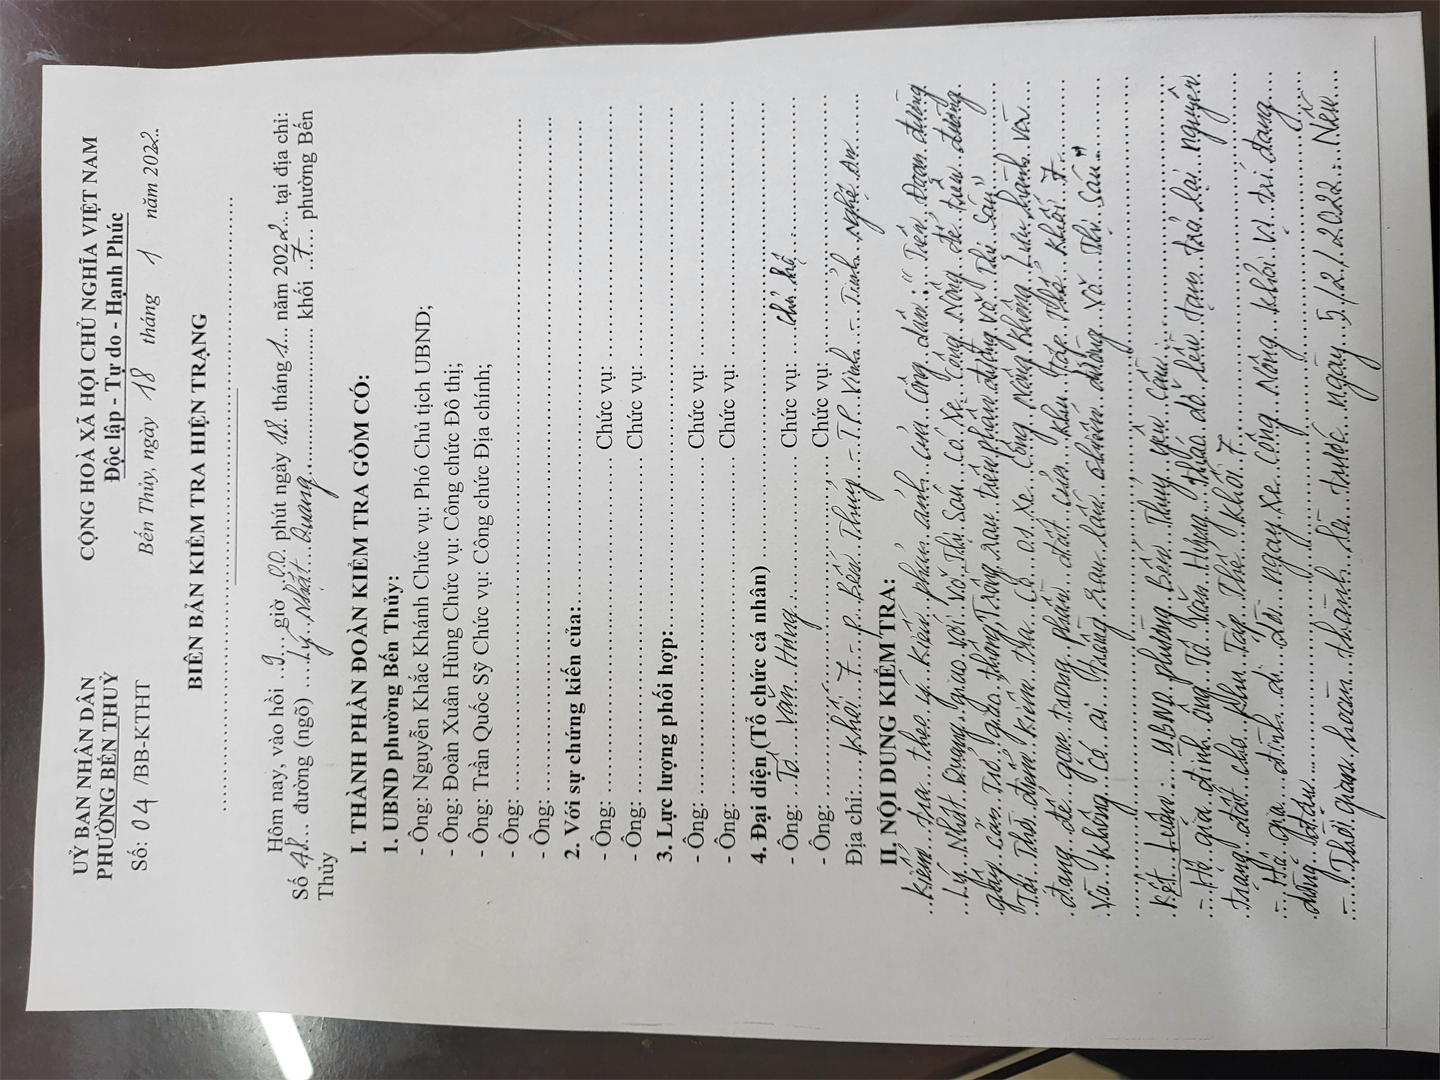 UỶ BAN NHÂN DÂN
PHƯỜNG BẾN THUỶ
Số: 04 /BB-KTHT
CỘNG HOÀ XÃ HỘI CHỦ NGHĨA VIỆT NAM
Độc lập - Tự do - Hạnh Phúc
Bến Thủy, ngày 18 tháng 1 năm 2022
BIÊN BẢN KIỂM TRA HIỆN TRẠNG
Hôm nay, vào hồi 9 giờ 00 phút ngày 18 tháng 1 năm 2022 tại địa chỉ:
Số 4A đường (ngõ) Lý Nhật Quang khối 7 phường Bến
Thủy
I. THÀNH PHẦN ĐOÀN KIỂM TRA GỒM CÓ:
1. UBND phường Bến Thủy:
- Ông: Nguyễn Khắc Khánh Chức vụ: Phó Chủ tịch UBND;
- Ông: Đoàn Xuân Hùng Chức vụ: Công chức Đô thị;
- Ông: Trần Quốc Sỹ Chức vụ: Công chức Địa chính;
- Ông:
- Ông:
2. Với sự chứng kiến của:
- Ông: Chức vụ:
- Ông: Chức vụ:
3. Lực lượng phối hợp:
- Ông: Chức vụ:
- Ông: Chức vụ:
4. Đại diện (Tổ chức cá nhân)
- Ông: Tô Văn Hưng Chức vụ: chủ hộ
- Ông: Chức vụ:
Địa chỉ: khối 7 - P. Bến Thuỷ - TP Vinh - Tỉnh Nghệ An
II. NỘI DUNG KIỂM TRA:
Kiểm tra theo ý kiến phản ánh của công dân: "Trên đoạn đường
Lý Nhật Quang giao với Võ Thị Sáu có xe Công Nông để trên đường
gây cản trở giao thông, Trồng rau trên phần đường Võ Thị Sáu"
Tại thời điểm kiểm tra: Có 01 xe Công Nông không lưu hành và
đang để gọn trong phần đất của khu tập thể khối 7
Và không có ai trồng rau lấn chiếm đường Võ Thị Sáu."
Kết luận: UBND phường Bến Thuỷ yêu cầu:
- Hộ gia đình ông Tô Văn Hưng tháo dỡ lều tạm trả lại nguyên
trạng đất cho khu Tập Thể khối 7.
- Hộ gia đình di dời ngay xe Công Nông khỏi vị trí đang
- Thời gian hoàn thành là trước ngày 5/2/2022. Nếu